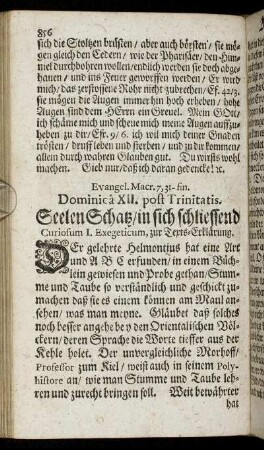 856
sich die Stoltzen brüsten / aber auch börsten / sie mö-
gen gleich den Cedern / wie der Pharisäer / den Him-
mel durchbohren wollen / endlich werden sie doch abge-
hauen / und ins Feuer geworffen werden / Er wird
mich / das zerstossene Rohr nicht zubrechen / Es. 42/3.
sie mögen die Augen immerhin hoch erheben / hohe
Augen sind dem HErrn ein Greuel. Mein GOtt /
ich schäme mich und scheue mich meine Augen auffzu-
heben zu dir / Esr. 9/6. ich wil mich deiner Gnaden
trösten / druff leben und sterben / und zu dir kommen /
allein durch wahren Glauben gut. Du wirsts wohl
machen. Gieb nur / daß ich daran gedencke! ꝛc.
Evangel. Marc. 7, 31-fin.
Dominicâ XII. post Trinitatis.
Seelen Schatz / in sich schliessend
Curiosum I. Exegeticum, zur Texts-Erklärung.
DEr gelehrte Helmontius hat eine Art
und A B C erfunden / in einem Büch-
lein gewiesen und Probe gethan / Stum-
me und Taube so verständlich und geschickt zu-
machen daß sie es einem können am Maul an-
sehen / was man meyne. Gläubet daß solches
noch besser angehe bey den Orientalischen Völ-
ckern / deren Sprache die Worte tieffer aus der
Kehle holet. Der unvergleichliche Morhoff /
Professor zum Kiel / weist auch in seinem Poly-
histore an / wie man Stumme und Taube leh-
ren und zurecht bringen soll. Weit bewährter
hat